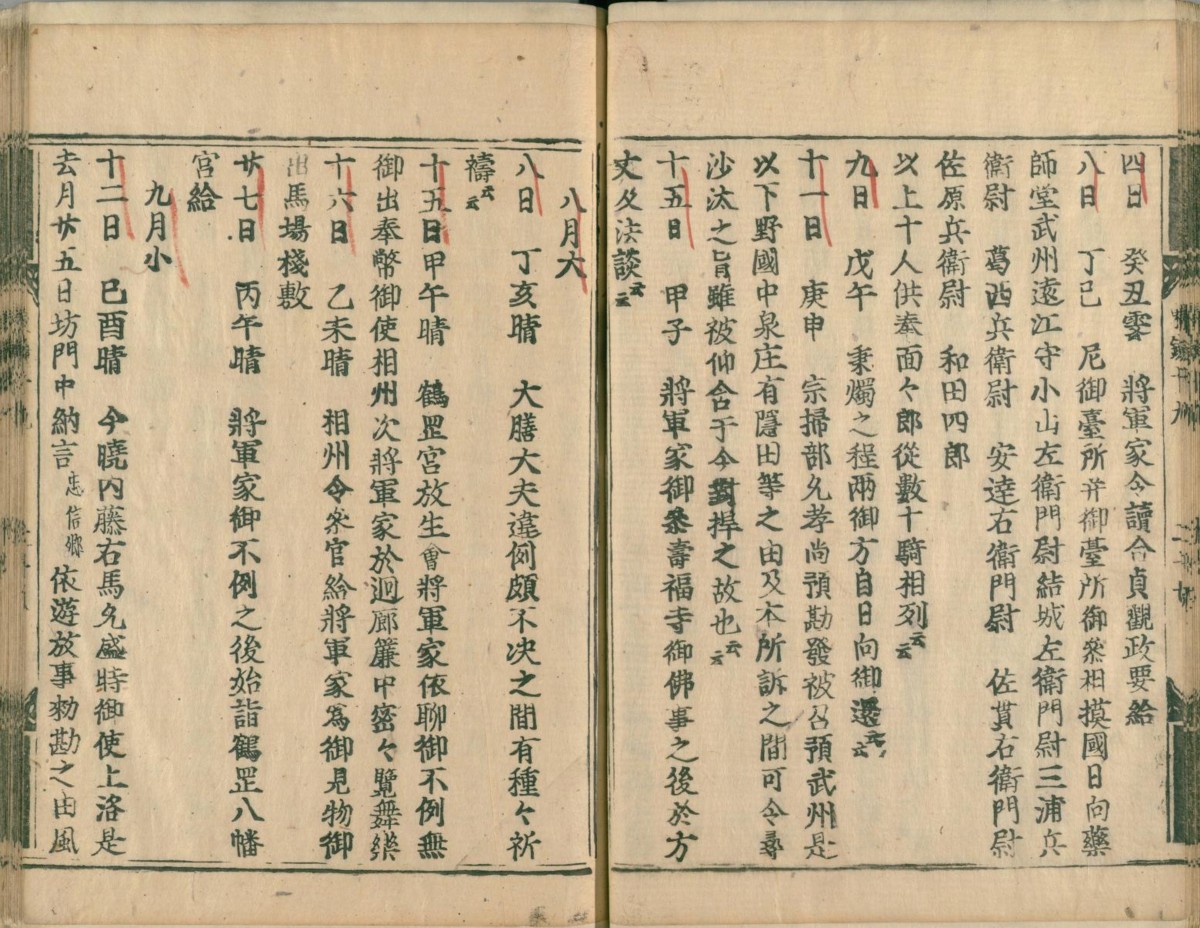 四日　癸丑霽　將軍家令讀合貞觀政要給
八日　丁巳　尼御臺所并御臺所御參相摸國日向藥
師堂武州遠江守小山左衛門尉結城左衛門尉三浦兵
衛尉　葛西兵衛尉　安達右衛門尉　佐貫右衛門尉
佐原兵衛尉　和田四郎
以上十人供奉面々郎從數十騎相列云云
九日　戊午　秉燭之程兩御方自日向御還云云
十一日　庚申　宗掃部允孝尚預勘發被召預武州是
以下野國中泉庄有隱田等之由及本所訴之間可令尋
沙汰之旨雖被仰含于今對捍之故也云云
十五日　甲子　將軍家御參壽福寺御佛事之後於方
丈及法談云云
八月大
八日　丁亥晴　大膳大夫違例頗不决之間有種々祈
禱云云
十五日甲午晴　鶴罡宮放生會將軍家依聊御不例無
御出奉幣御使相州次將軍家於迴廊簾中密々覽舞樂
十六日　乙未晴　相州令參官給將軍家爲御見物御
出馬場棧敷
廿七日　丙午晴　將軍家御不例之後始詣鶴罡八幡
宮給
九月小
十二日　己酉晴　今曉内藤右馬允盛時御使上洛是
去月廿五日坊門中納言忠信卿依遊放事勅勘之由風